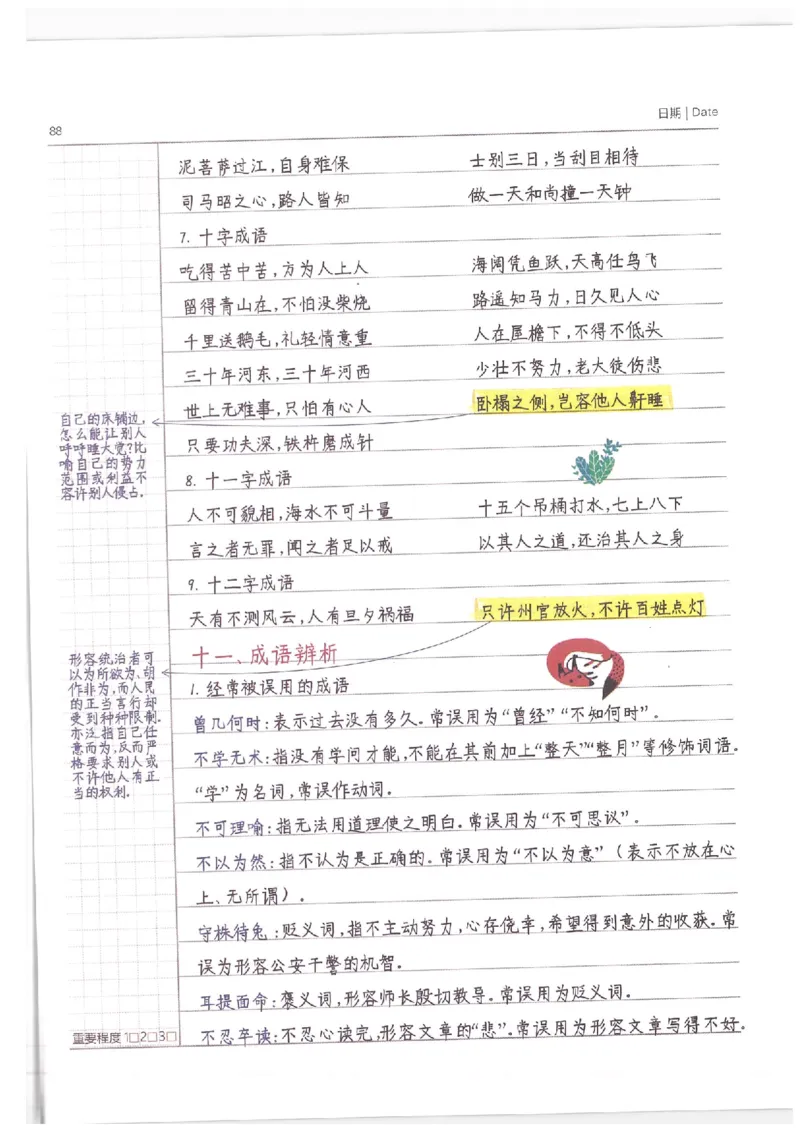 日期 | Date
88
泥菩萨过江,自身难保 士别三日,当刮目相待
司马昭之心,路人皆知 做一天和尚撞一天钟
7. 十字成语
吃得苦中苦,方为人上人 海阔凭鱼跃,天高任鸟飞
留得青山在,不怕没柴烧 路遥知马力,日久见人心
千里送鹅毛,礼轻情意重 人在屋檐下,不得不低头
三十年河东,三十年河西 少壮不努力,老大徒伤悲
世上无难事,只怕有心人 卧榻之侧,岂容他人鼾睡
只要功夫深,铁杵磨成针
8. 十一字成语
人不可貌相,海水不可斗量 十五个吊桶打水,七上八下
言之者无罪,闻之者足以戒 以其人之道,还治其人之身
9. 十二字成语
天有不测风云,人有旦夕祸福 只许州官放火,不许百姓点灯
十一、成语辨析
1. 经常被误用的成语
曾几何时:表示过去没有多久。常误用为“曾经”“不知何时”.
不学无术:指没有学问才能,不能在其前加上“整天”“整月”等修饰词语.
“学”为名词,常误作动词.
不可理喻:指无法用道理使之明白.常误用为“不可思议”.
不以为然:指不认为是正确的.常误用为“不以为意”(表示不放在心
上、无所谓).
守株待兔:贬义词,指不主动努力,心存侥幸,希望得到意外的收获.常
误为形容公安干警的机智.
耳提面命:褒义词,形容师长殷切教导.常误用为贬义词.
不忍卒读:不忍心读完,形容文章的“悲”.常误用为形容文章写得不好.
自己的床铺边,
怎么能让别人
呼呼睡大觉?比
喻自己的势力
范围或利益不
容许别人侵占.
形容统治者可
以为所欲为、胡
作非为,而人民
的正当言行却
受到种种限制.
亦泛指自己任
意而为,反而严
格要求别人或
不许他人有正
当的权利.
重要程度 1□2□3□